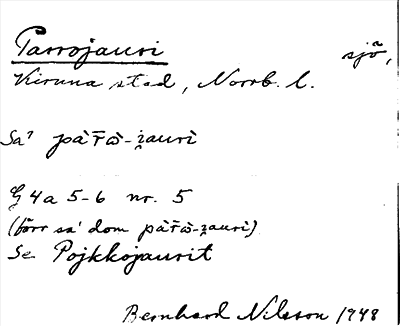 Parrojauri sjö,
Kiruna stad, Norrb. l.
Sa' pàr̄ὼ-ʒaurì
G 4a 5-6 nr. 5
(förr sa' dom pàr̄ὼ-ʒaurì)
Se Pojkkojaurit
Bernhard Nilsson 1948